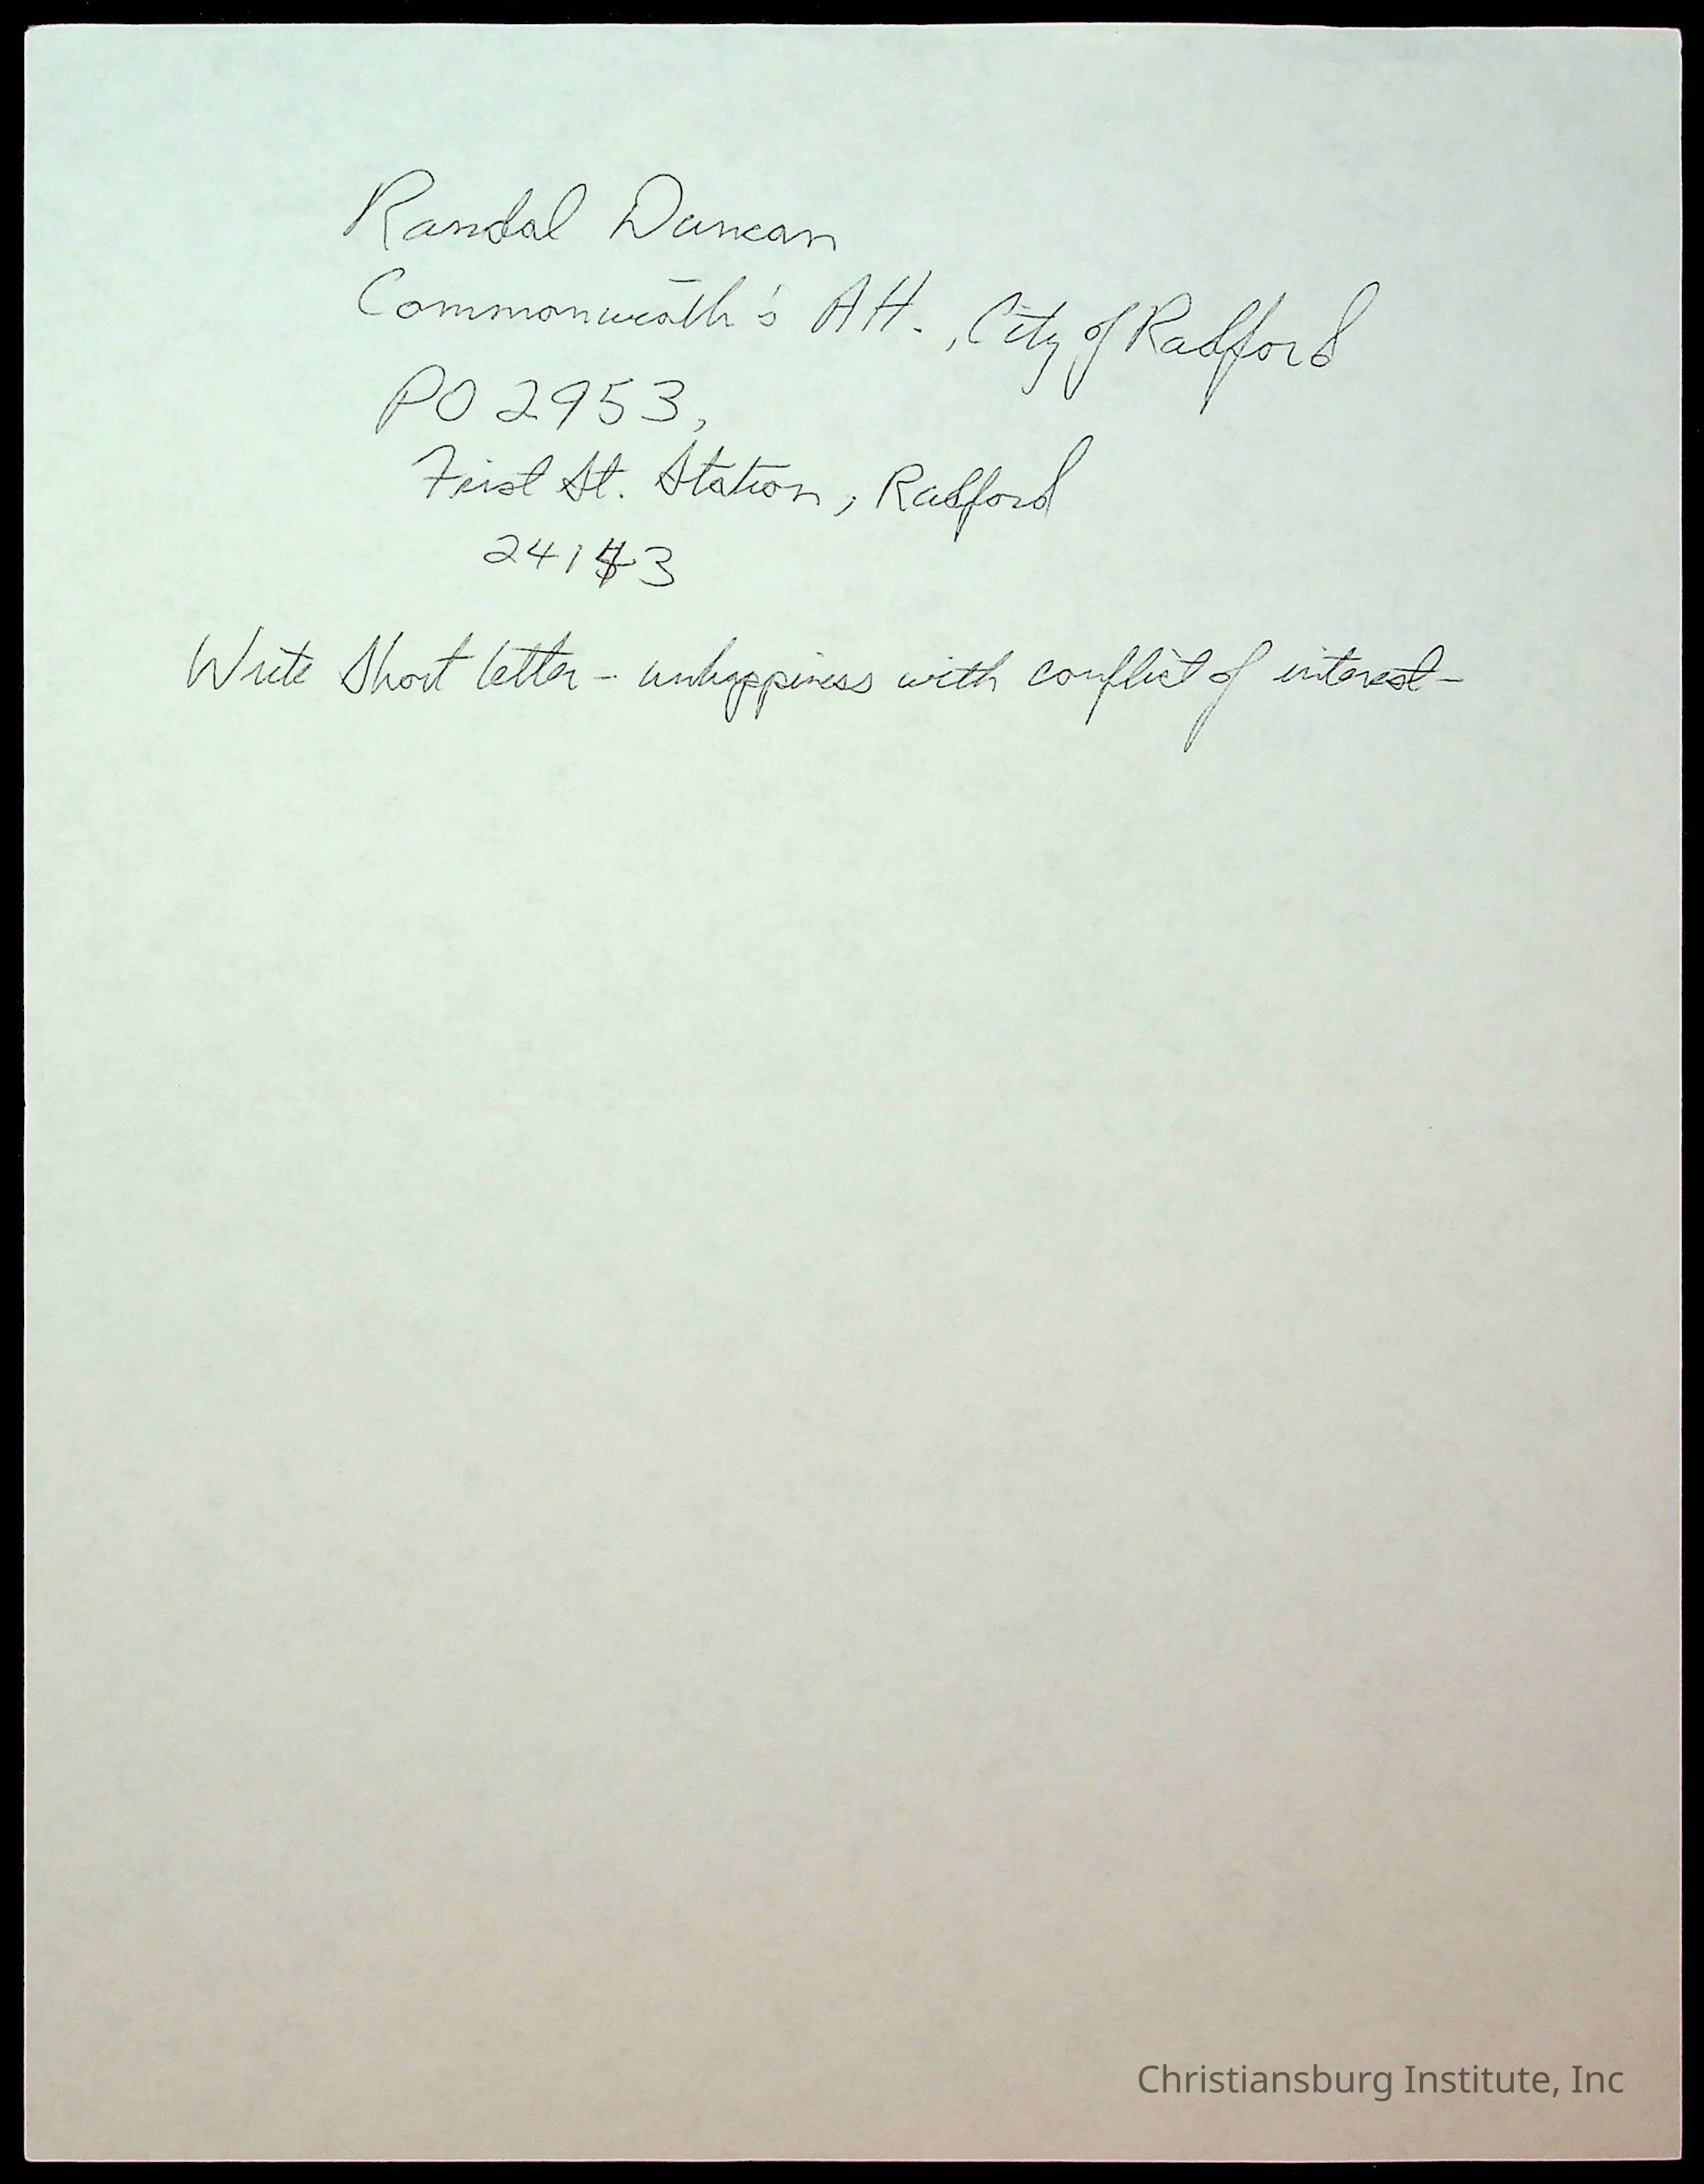 Randal Duncan
Commonweath's Att., City of Radford
PO 2953,
First St. Station, Radford
24143
Write Short letter - unhappiness with conflict of interest -
Christiansburg Institute, Inc